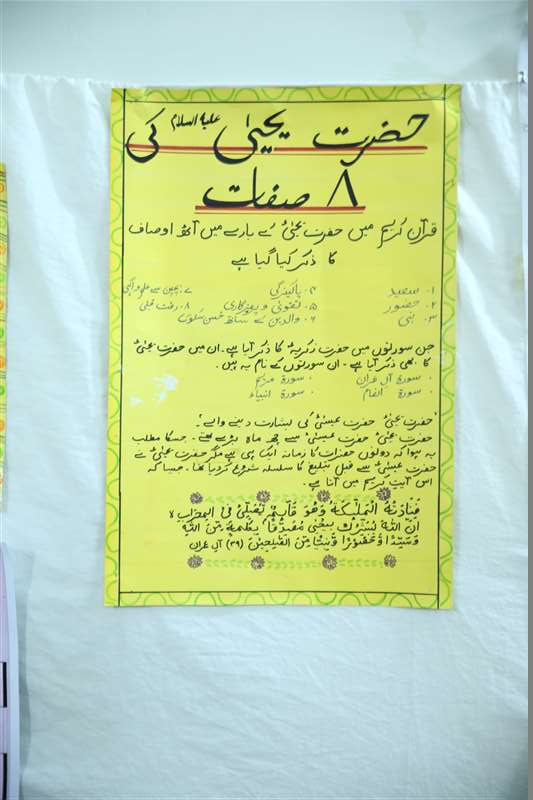 حضرت یحییٰ علیہ السلام کی
۸ صفات
قرآن کریم میں حضرت یحییٰؑ کے بارے میں آٹھ اوصاف
کا ذکر کیا گیا ہے
۱۔ سعید ۴۔ پاکیزگی ۷۔ بچپن سے علم و آگہی
۲۔ حضور ۵۔ تقویٰ و پرہیزگاری ۸۔ رقت قلبی
۳۔ نبی ۶۔ والدین کے ساتھ حسن سلوک
جن سورتوں میں حضرت زکریاؑ کا ذکر آیا ہے۔ ان میں حضرت یحییٰؑ
کا بھی ذکر آیا ہے۔ ان سورتوں کے نام یہ ہیں۔
۰ سورۃ آل عمران ۰ سورۃ مریم
۰ سورۃ انعام ۰ سورۃ انبیاء
"حضرت یحییٰؑ حضرت عیسیٰؑ کی بشارت دینے والے"
حضرت یحییٰؑ حضرت عیسیٰؑ سے چھ ماہ بڑے تھے۔ جسکا مطلب
یہ ہوا کہ دونوں حضرات کا زمانہ ایک ہی ہے مگر حضرت یحییٰؑ نے
حضرت عیسیٰؑ سے قبل تبلیغ کا سلسلہ شروع کردیا تھا۔ جیسا کہ
اس آیتِ کریمہ میں آتا ہے۔
فَنَادَتْهُ الْمَلٰٓئِكَةُ وَهُوَ قَآئِمٌ يُّصَلِّيْ فِي الْمِحْرَابِ لا
اَنَّ اللّٰهَ يُبَشِّرُكَ بِيَحْيٰى مُصَدِّقًا بِكَلِمَةٍ مِّنَ اللّٰهِ
وَسَيِّدًا وَّحَصُوْرًا وَّنَبِيًّا مِّنَ الصّٰلِحِيْنَ (۳۹) آل عمران